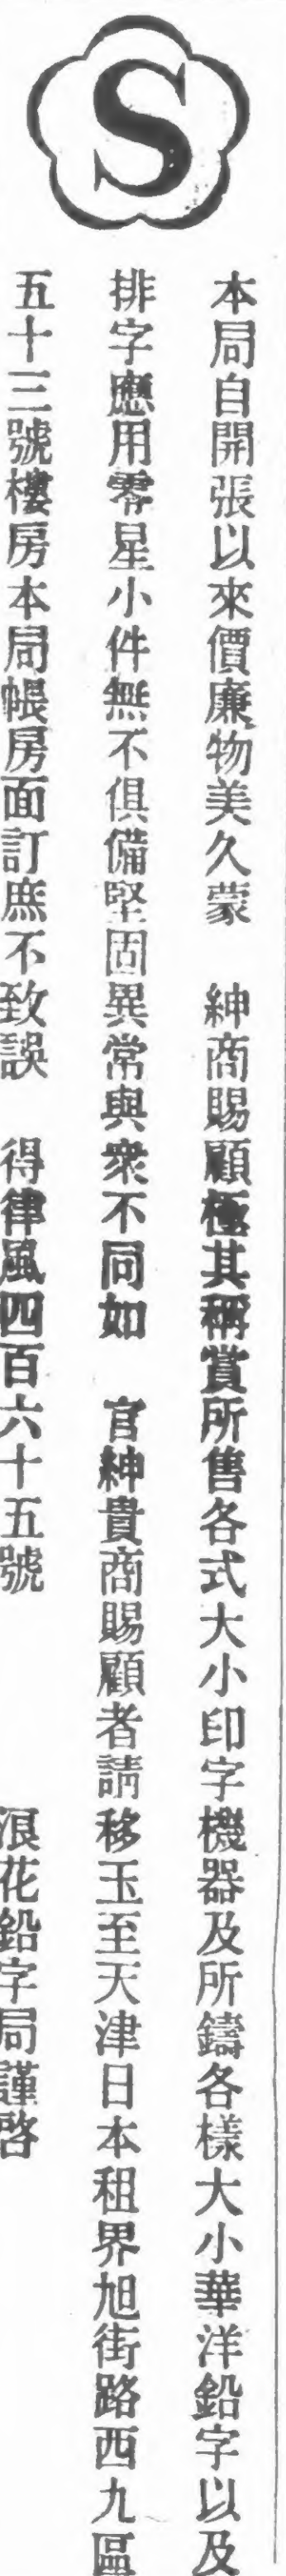 S
本局自開張以來價廉物美久蒙　紳商賜顧極其稱賞所售各式大小印字機器及所鑄各樣大小華洋鉛字以及
排字應用零星小件無不俱備堅固異常與衆不同如　官紳貴商賜顧者請移玉至天津日本租界旭街路西九區
五十三號樓房本局帳房面訂庶不致誤　得律風四百六十五號　　浪花鉛字局謹啓